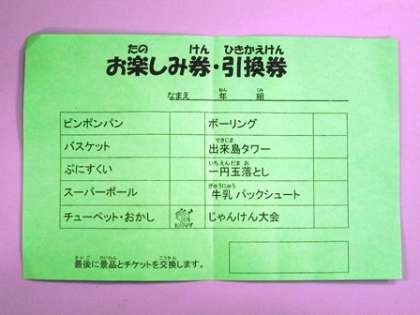 たの けん ひきかえけん
お楽しみ券・引換券
ねん くみ
なまえ 年 組
ピンポンパン ボーリング
できじま
バスケット 出来島タワー
いちえんだま お
ぷにすくい 一円玉落とし
ぎゅうにゅう
スーパーボール 牛乳パックシュート
チューペット・おかし じゃんけん大会
さいご けいひん こうかん
最後に景品とチケットを交換します。